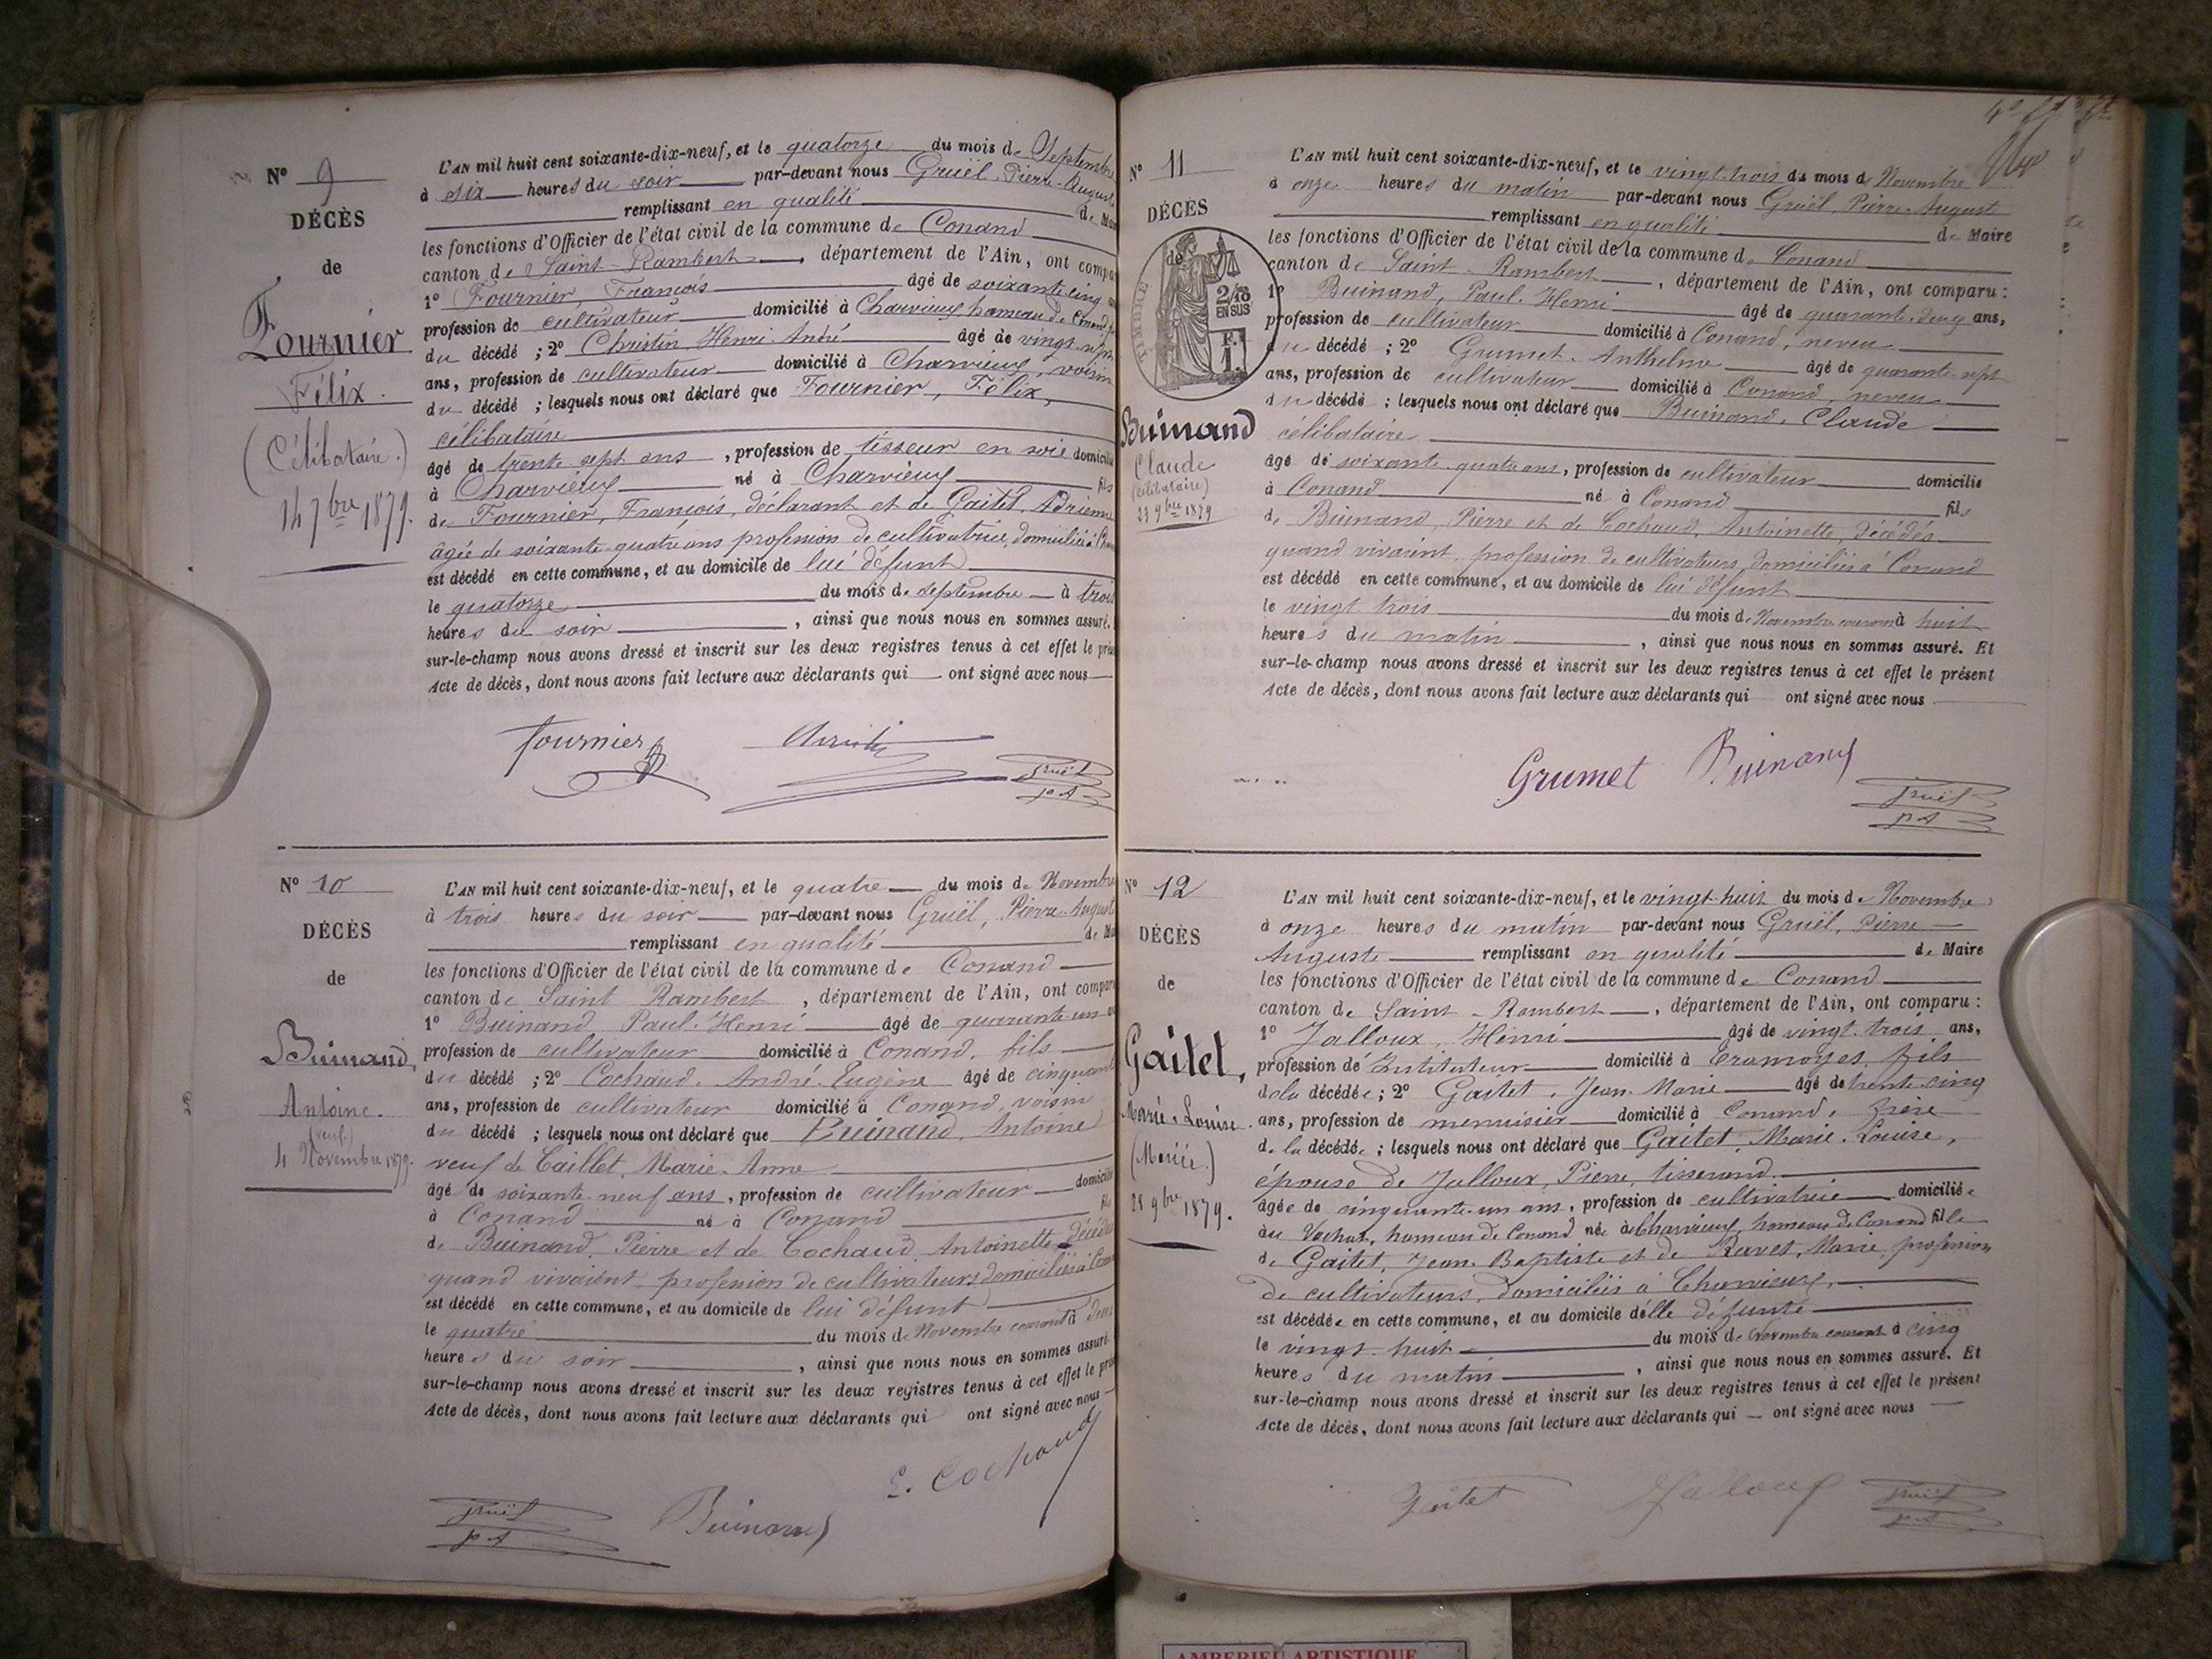 N° 9
DÉCÈS
de
Fournier
Félix.
(Célibataire.)
14 7bre 1879.
L'AN mil huit cent soixante-dix-neuf, et le quatorze du mois de Septembre
à six heures du soir par-devant nous Gruël, Pierre-Auguste
remplissant en qualité de
les fonctions d'Officier de l'état civil de la commune de Conand
canton de Saint-Rambert, département de l'Ain, ont
1° Fournier, François âgé de soixante cinq
profession de cultivateur domicilié à Charvieux hameau de Conand
du décédé ; 2° Christin Henri André âgé de vingt-sept
ans, profession de cultivateur domicilié à Charvieux, voisin
du décédé ; lesquels nous ont déclaré que Fournier, Félix,
célibataire
âgé de trente sept ans, profession de tisseur en soie domicilié
à Charvieux né à Charvieux fils
de Fournier, François, déclarant et de Gaitet, Adrienne
âgée de soixante-quatre ans profession de cultivatrice, domiciliée à
est décédé en cette commune, et au domicile de lui défunt
le quatorze du mois de septembre à trois
heures du soir, ainsi que nous nous en sommes assuré.
sur-le-champ nous avons dressé et inscrit sur les deux registres tenus à cet effet le
Acte de décès, dont nous avons fait lecture aux déclarants qui ont signé avec nous
fournier
Gruël
P A
N° 10
DÉCÈS
de
Buinand,
Antoine.
(veuf.)
4 Novembre 1879.
L'AN mil huit cent soixante-dix-neuf, et le quatre du mois de Novembre
à trois heures du soir par-devant nous Gruël, Pierre-Auguste
remplissant en qualité de
les fonctions d'Officier de l'état civil de la commune de Conand
canton de Saint Rambert, département de l'Ain, ont
1° Buinand, Paul-Henri âgé de quarante-un
profession de cultivateur domicilié à Conand, fils
du décédé ; 2° Cochaud, André-Eugène âgé de cinquante
ans, profession de cultivateur domicilié à Conand, voisin
du décédé ; lesquels nous ont déclaré que Buinand, Antoine
veuf de Caillet, Marie-Anne
âgé de soixante-neuf ans, profession de cultivateur domicilié
à Conand né à Conand
de Buinand, Pierre et de Cochaud, Antoinette, décédés
quand vivaient profession de cultivateurs domiciliés à
est décédé en cette commune, et au domicile de lui défunt
le quatre du mois de Novembre courant à
heures du soir, ainsi que nous nous en sommes assuré.
sur-le-champ nous avons dressé et inscrit sur les deux registres tenus à cet effet le
Acte de décès, dont nous avons fait lecture aux déclarants qui ont signé avec nous
E. Cochaud
Gruël
P A
Buinand
N° 11
DÉCÈS
de
TIMBRE
2/10
EN SUS
F.
1.
Buinand
Claude
(célibataire)
23 9bre 1879
L'AN mil huit cent soixante-dix-neuf, et le vingt-trois du mois de Novembre
à onze heures du matin par-devant nous Gruël, Pierre-Auguste
remplissant en qualité de Maire
les fonctions d'Officier de l'état civil de la commune de Conand
canton de Saint-Rambert, département de l'Ain, ont comparu :
1° Buinand, Paul-Henri âgé de quarante-deux ans,
profession de cultivateur domicilié à Conand, neveu
du décédé ; 2° Grumet-Anthelme âgé de quarante-sept
ans, profession de cultivateur domicilié à Conand, neveu
du décédé ; lesquels nous ont déclaré que Buinand, Claude
célibataire
âgé de soixante-quatre ans, profession de cultivateur domicilié
à Conand né à Conand fils
de Buinand, Pierre et de Cochaud, Antoinette, décédés
quand vivaient, profession de cultivateurs, domiciliés à Conand
est décédé en cette commune, et au domicile de lui défunt
le vingt trois du mois de Novembre courant à huit
heures du matin, ainsi que nous nous en sommes assuré. Et
sur-le-champ nous avons dressé et inscrit sur les deux registres tenus à cet effet le présent
Acte de décès, dont nous avons fait lecture aux déclarants qui ont signé avec nous
Grumet Buinand
Gruël
P A
N° 12
DÉCÈS
de
Gaitet,
Marie-Louise.
(Mariée.)
28 9bre 1879.
L'AN mil huit cent soixante-dix-neuf, et le vingt-huit du mois de Novembre
à onze heures du matin par-devant nous Gruël, Pierre
Auguste remplissant en qualité de Maire
les fonctions d'Officier de l'état civil de la commune de Conand
canton de Saint-Rambert, département de l'Ain, ont comparu :
1° Jalloux, Henri âgé de vingt-trois ans,
profession de Instituteur domicilié à Cramoyes, fils
de la décédée ; 2° Gaitet, Jean-Marie âgé de trente-cinq
ans, profession de menuisier domicilié à Conand, frère
de la décédée ; lesquels nous ont déclaré que Gaitet, Marie-Louise,
épouse de Jalloux, Pierre, tisserand.
âgée de cinquante-un ans, profession de cultivatrice domiciliée
au Vachat, hameau de Conand née à Charvieux, hameau de Conand fille
de Gaitet, Jean-Baptiste et de Ravet, Marie, profession
de cultivateurs, domiciliés à Charvieux,
est décédée en cette commune, et au domicile d'elle défunte
le vingt-huit du mois de Novembre courant à cinq
heures du matin, ainsi que nous nous en sommes assuré. Et
sur-le-champ nous avons dressé et inscrit sur les deux registres tenus à cet effet le présent
Acte de décès, dont nous avons fait lecture aux déclarants qui ont signé avec nous
Gaitet Jalloux
Gruël
P A
AMBERIEU ARTISTIQUE